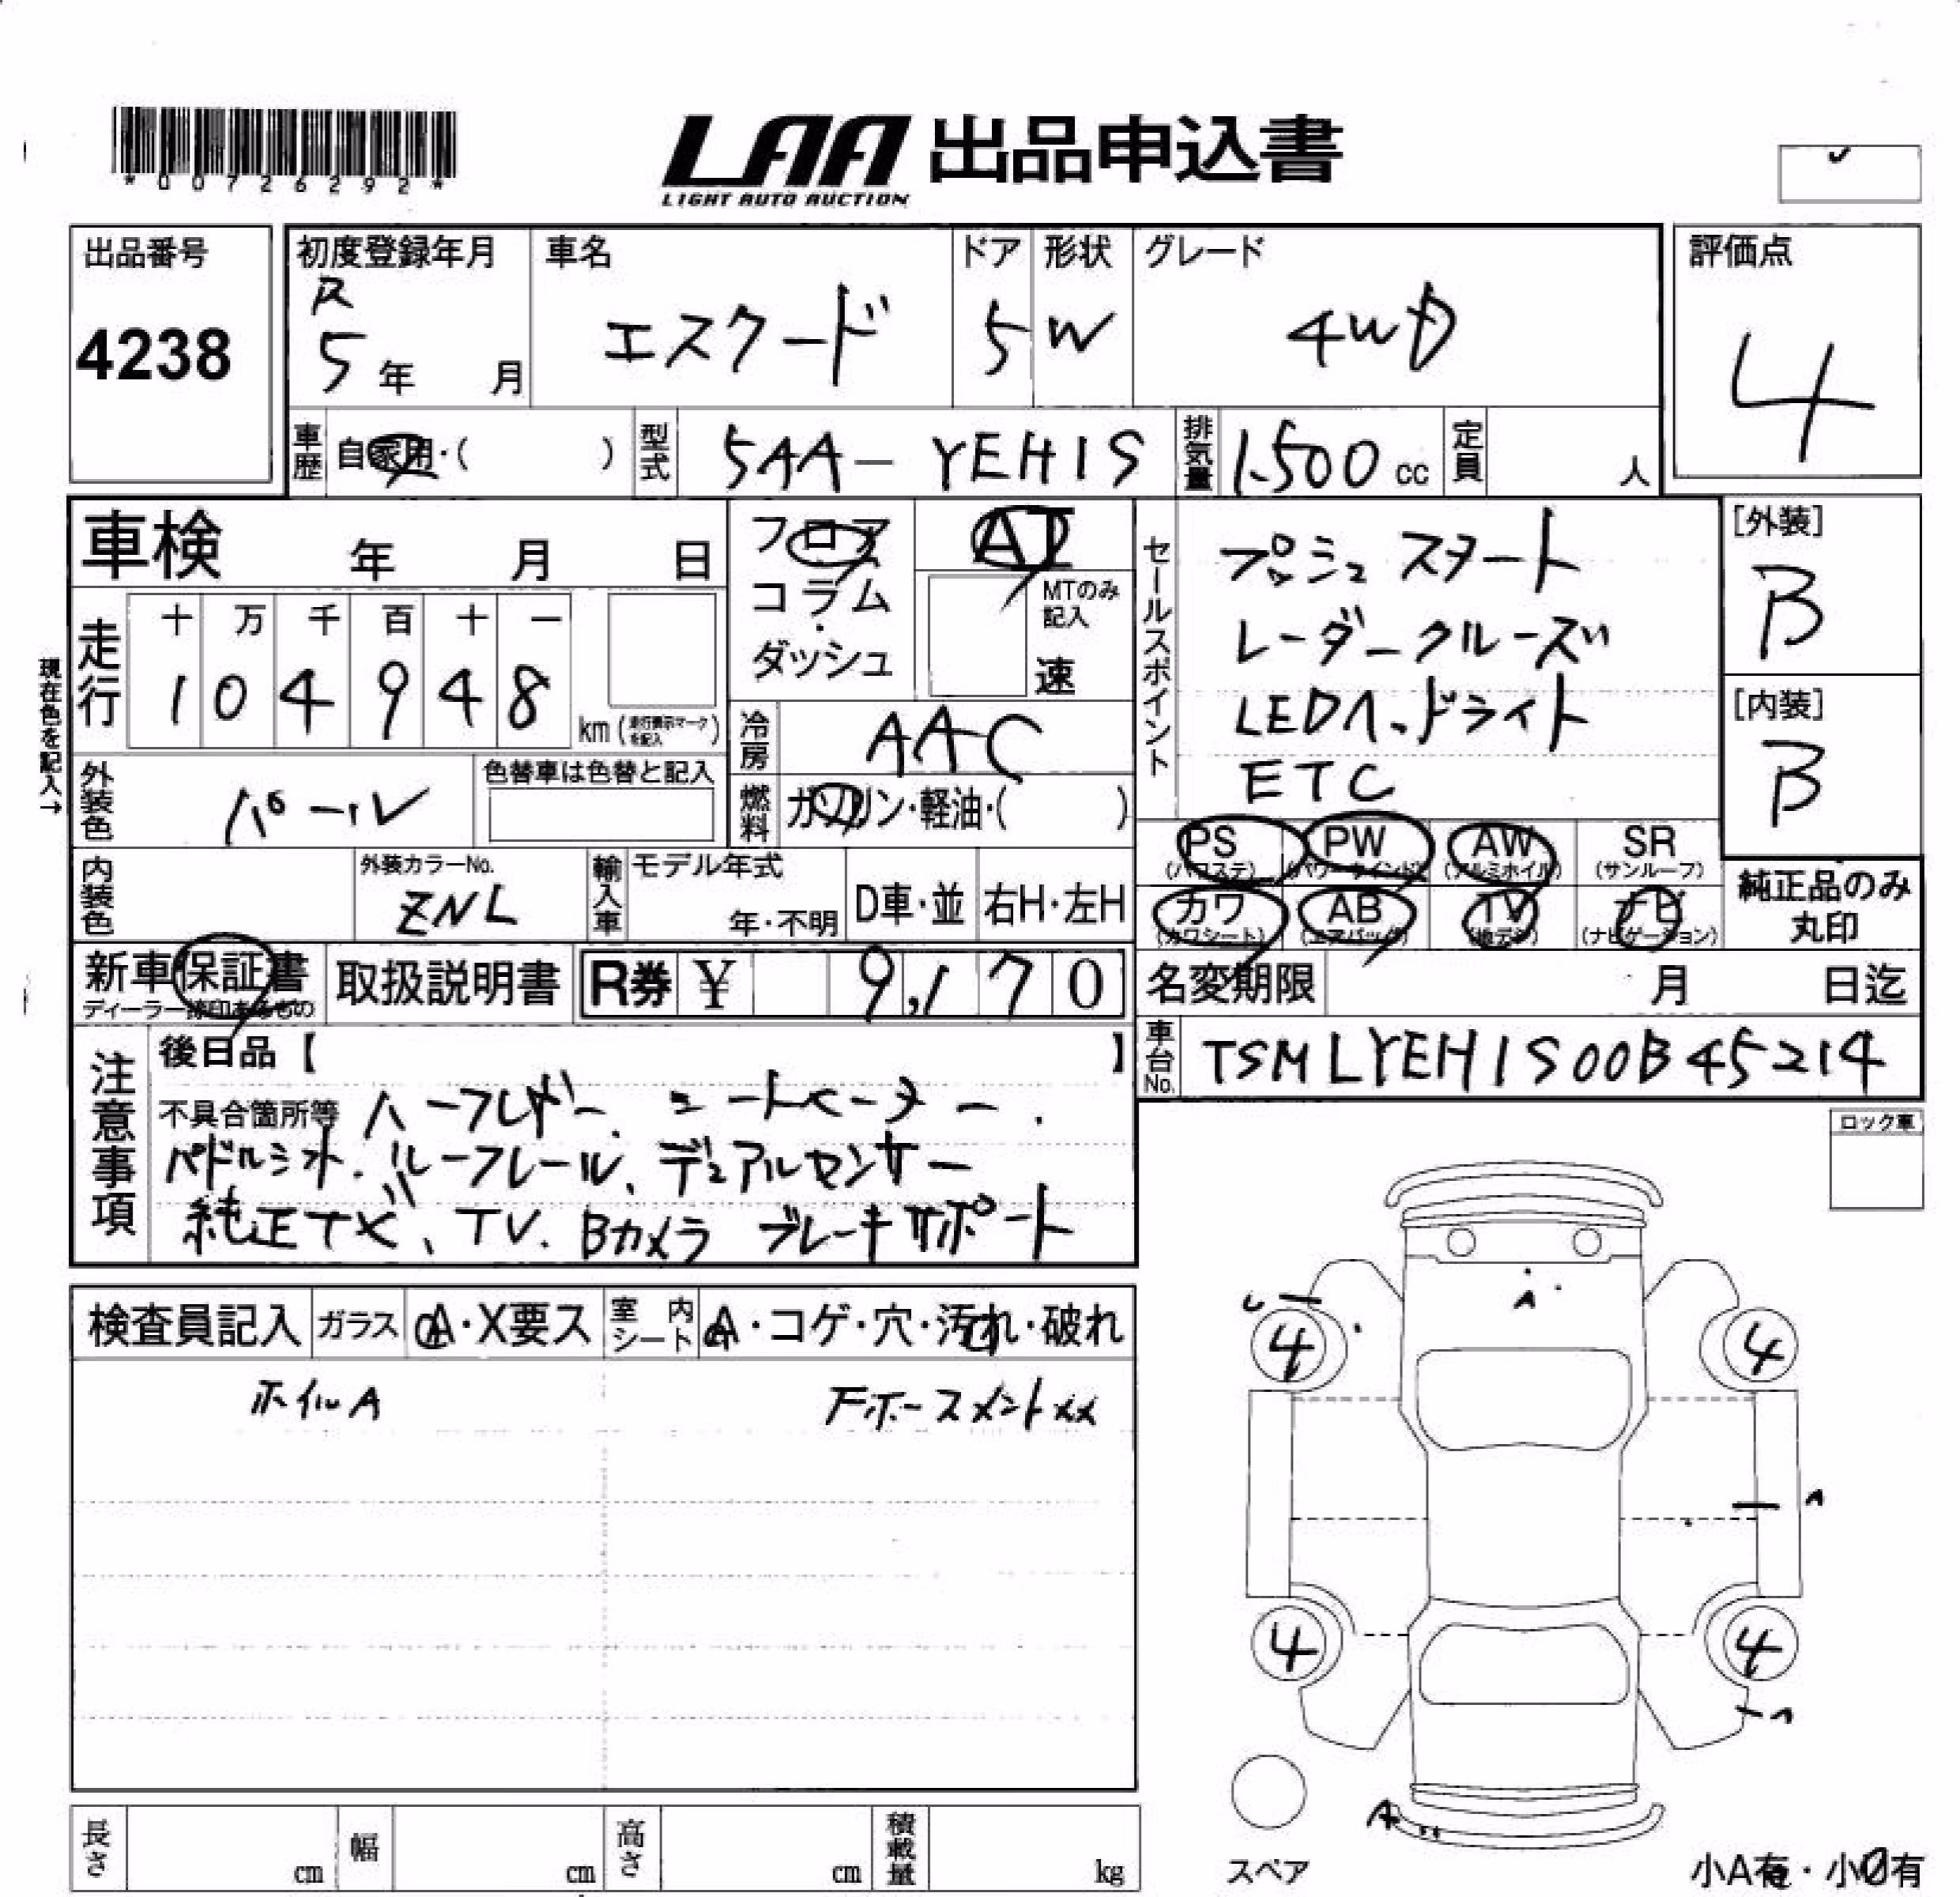 *00726292*
LAA 出品申込書
LIGHT AUTO AUCTION
出品番号
4238
初度登録年月
R
5 年 月
車名
エスクード
ドア
5
形状
W
グレード
4WD
評価点
4
車歴 自家用・( )
型式 5AA-YEH1S
排気量 1.500 cc
定員 人
車検 年 月 日
フロア
コラム
・
ダッシュ
AT
MTのみ記入
速
セールスポイント
プッシュスタート
レーダークルーズ
LEDヘッドライト
ETC
[外装]
B
[内装]
B
現在色を記入→
走行
十 万 千 百 十 一
1 0 4 9 4 8
km (走行表示マークを記入)
冷房 AAC
外装色 パール
色替車は色替と記入
燃料 ガソリン・軽油・( )
PS (パワステ) PW (パワーウインド) AW (アルミホイル) SR (サンルーフ)
カワ (カワシート) AB (エアバッグ) TV (地デジ) ナビ (ナビゲーション)
純正品のみ
丸印
内装色
外装カラーNo.
ZNL
輸入車 モデル年式
年・不明
D車・並 右H・左H
新車保証書
取扱説明書
R券 ¥ 9,170
名変期限 月 日迄
車台No. TSMLYEH1S00B45214
注意事項
後日品【 】
不具合箇所等 ハーフレザー、シートヒーター、
パドルシフト、ルーフレール、デュアルセンサー
純正ナビ、TV、Bカメラ ブレーキサポート
ロック車
検査員記入 ガラス A・X要ス 室内シート A・コゲ・穴・汚れ・破れ
ホイルA
Fホースメントxx
A
4 4
A
4 4
A
スペア
小A有・小U有
長さ cm 幅 cm 高さ cm 積載量 kg